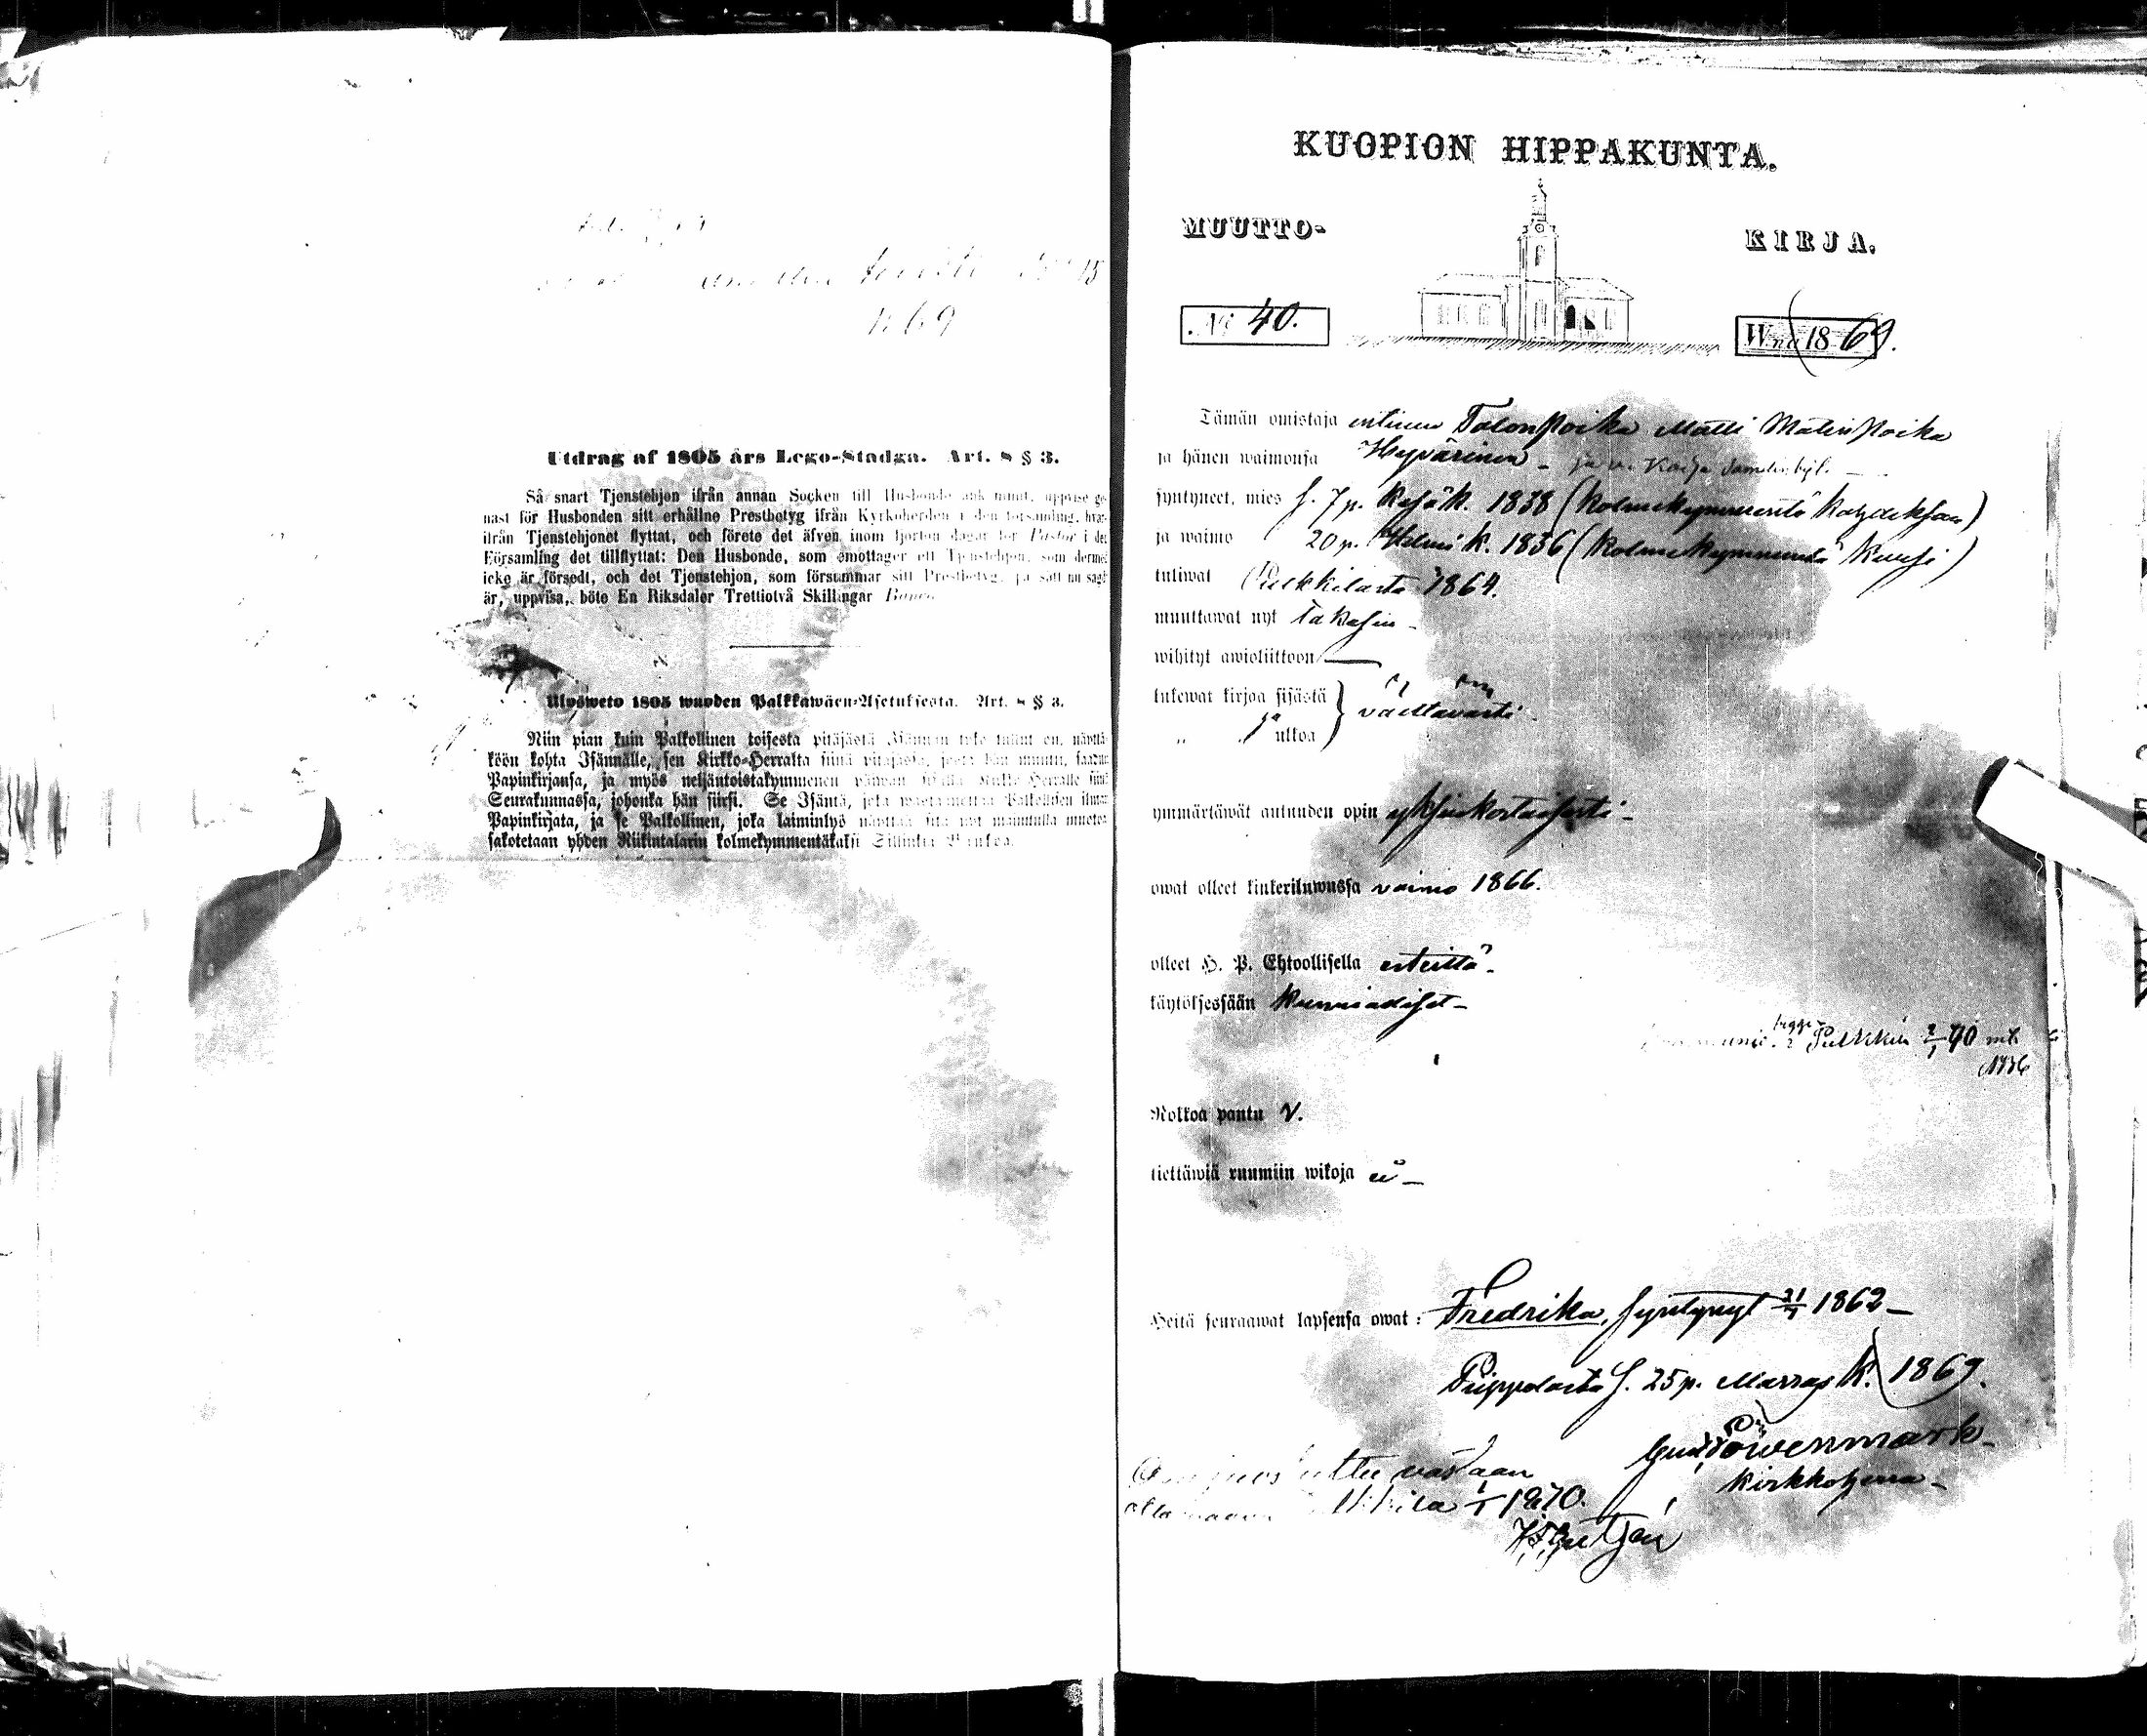 1869
Utdrag af 1805 års Lego-Stadga. Art. 8 § 3.
Så snart Tjenstehjon ifrån annan Socken till Husbonde ank mmit, uppvise ge-
nast för Husbonden sitt erhållne Prestbetyg ifrån Kyrkoherden i den församling, hvar-
ifrån Tjenstehjonet flyttat, och förete det äfven inom fjorton dagar för Pastor i den
Församling det tillflyttat: Den Husbonde, som emottager ett Tjenstehjon, som dermed
icke är försedt, och det Tjenstehjon, som försummar sitt Prestbetyg, på sätt nu sagdt
är, uppvisa, böte En Riksdaler Trettiotvå Skillingar Banco.
Ulosweto 1805 wuoden Palkkawäen-Asetuksesta. Art. 8 § 3.
Niin pian kuin Palkollinen toisesta pitäjästä Isännän tykö tullut on, näyttä-
köön kohta Isännälle, sen Kirkko-Herralta siinä pitäjässä, josta hän muutti, saadun
Papinkirjansa, ja myös neljäntoistakymmenen päiwän sisällä Kirkko-Herralle siinä
Seurakunnassa, johonka hän siirsi. Se Isäntä, joka wastaanottaa Palkollisen ilman
Papinkirjata, ja se Palkollinen, joka laiminlyö näyttää sitä nyt mainitulla muotoa
sakotetaan yhden Riikintalarin kolmekymmentäkaksi Sillinkiä Bankoa.
KUOPION HIPPAKUNTA.
MUUTTO- KIRJA.
N:o 40. W:na 1869.
Tämän omistaja entinen Talonpoika Matti Matinpoika
ja hänen waimonsa Hyvärinen - ja v. Kaisa
syntyneet, mies s. 7 p. Kesäk. 1838 (kolmekymmentä kahdeksan)
ja waimo 20 p. Helmi k. 1836 (kolmekymmentä kuusi)
tuliwat Pulkkilasta 1864.
muuttawat nyt takasin -
wihityt awioliittoon —
lukewat kirjaa sisästä } välttävästi
„ „ ulkoa
ymmärtäwät autuuden opin yksinkertaisesti -
owat olleet kinkeriluwussa vaimo 1866.
olleet H. P. Ehtoollisella esteittä -
käytöksessään kunnialliset -
Pulkkila
Rokkoa pantu v.
tiettäwiä ruumiin wikoja ei -
Heitä seuraawat lapsensa owat: Fredrika, syntynyt 21/7 1862 -
Piippolasta s. 25 p. Marras k. 1869.
Löwenmark
kirkkoherra -
vastaan
1/1 1870.